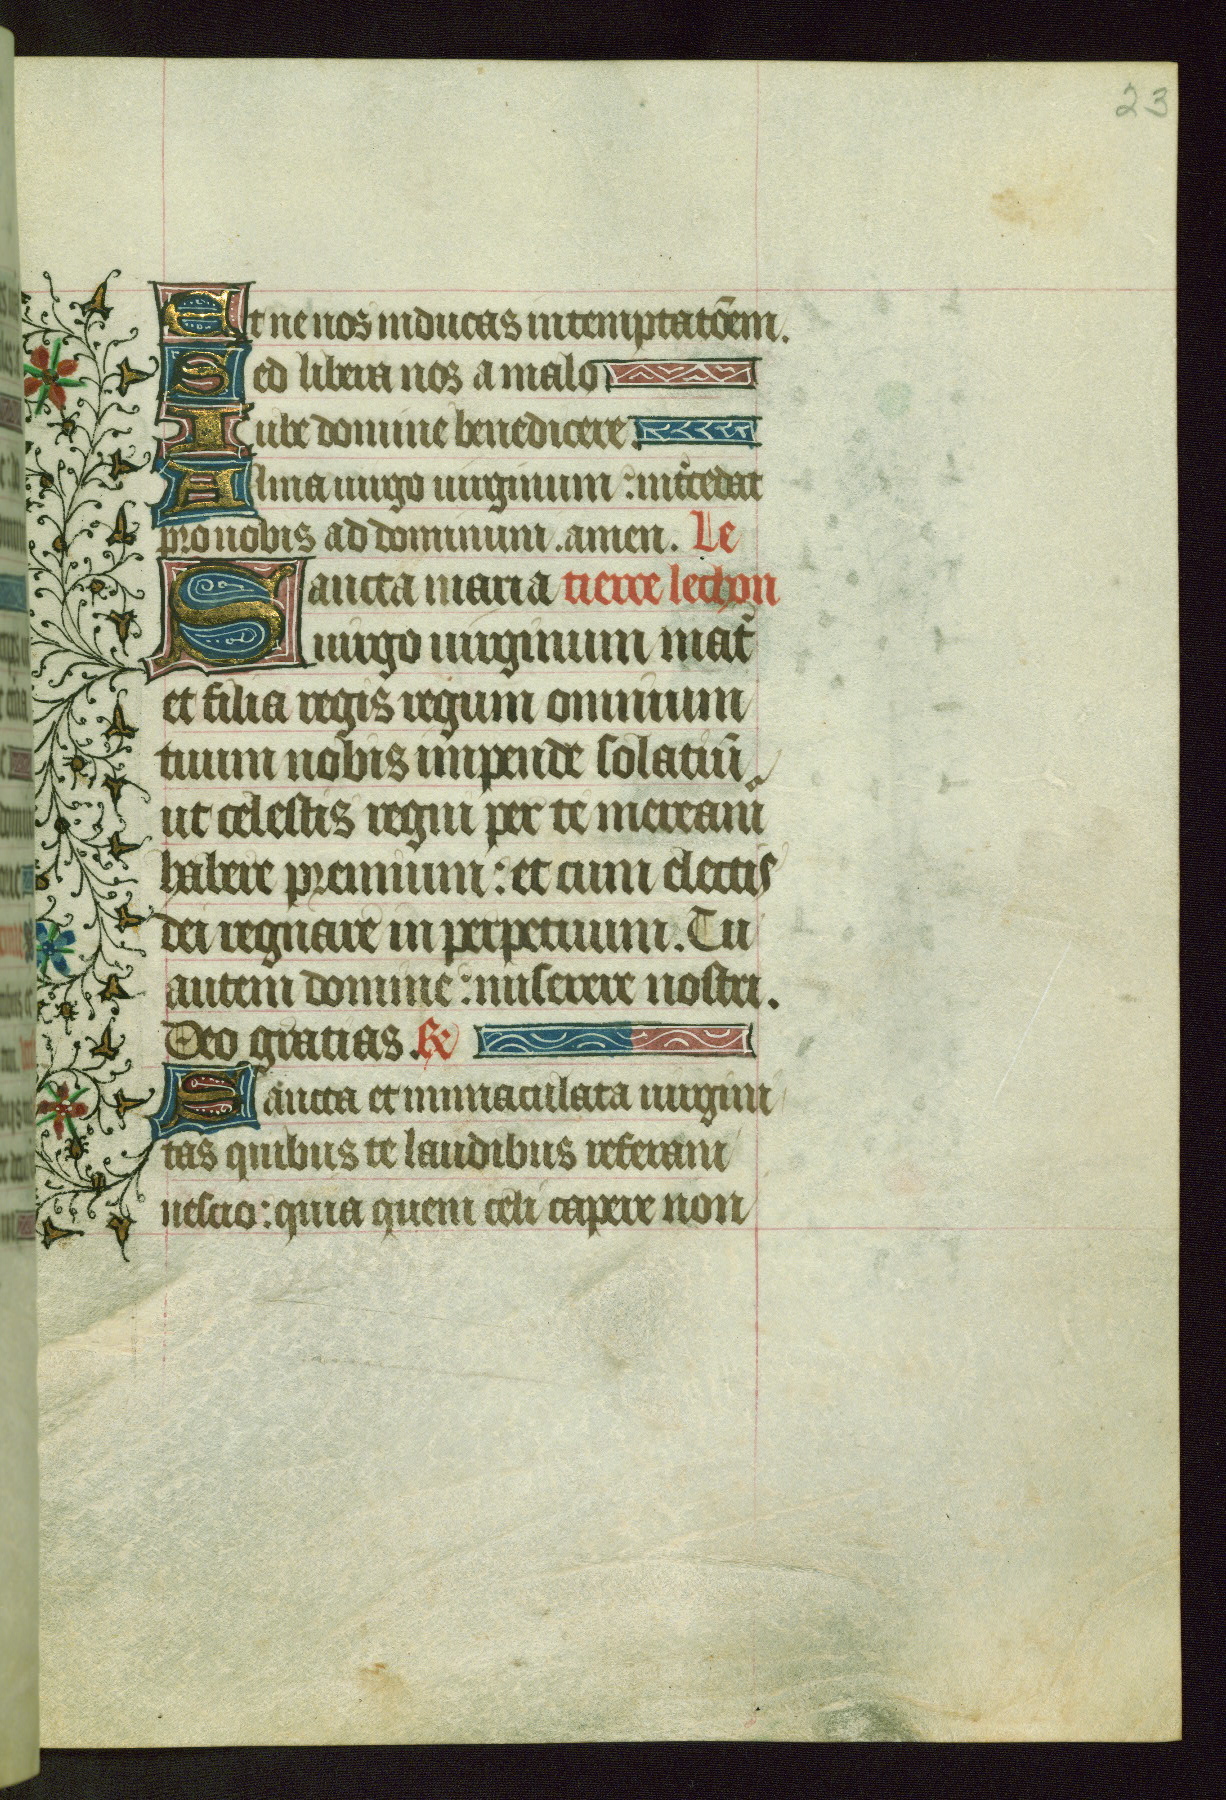 23
Et ne nos inducas in temptatōem.
Sed libera nos a malo
Iube domine benedicere.
Alma uirgo uirginum : int̄cedat
pro nobis ad dominum . amen. Le
Sancta maria tierce lechon
uirgo uirginum mat̄
et filia regis regum omnium
tuum nobis impende solatiū
ut celestis regni per te meream̄
habere premium : et cum electis
dei regnare in perpetuum. Tu
autem domine : miserere nostri.
Deo gratias. ℟
Sancta et immaculata uirgini
tas quibus te laudibus referam
nescio : quia quem celi capere non